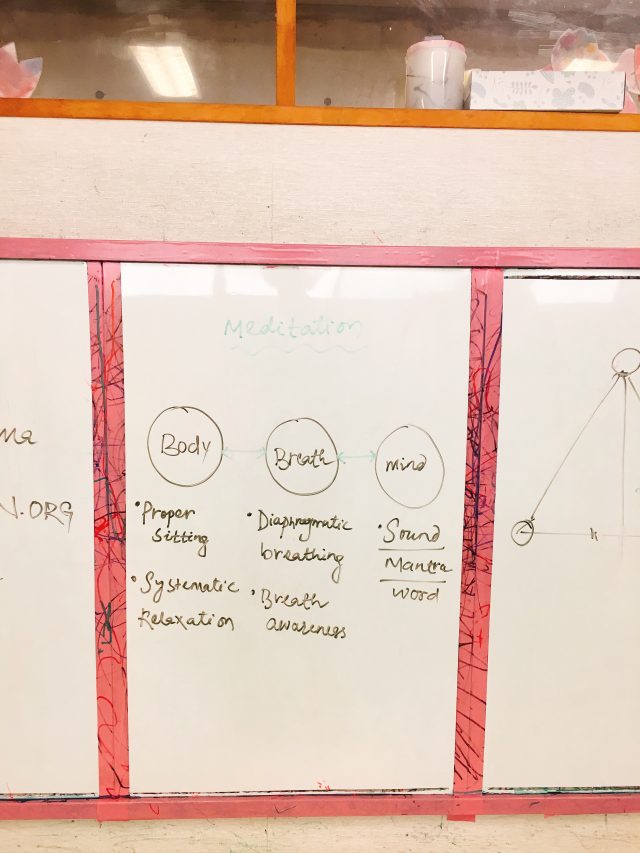 Meditation
Body
Breath
mind
• Proper
sitting
• Systematic
Relaxation
• Diaphragmatic
breathing
• Breath
awareness
• Sound
Mantra
word
ma
N.ORG